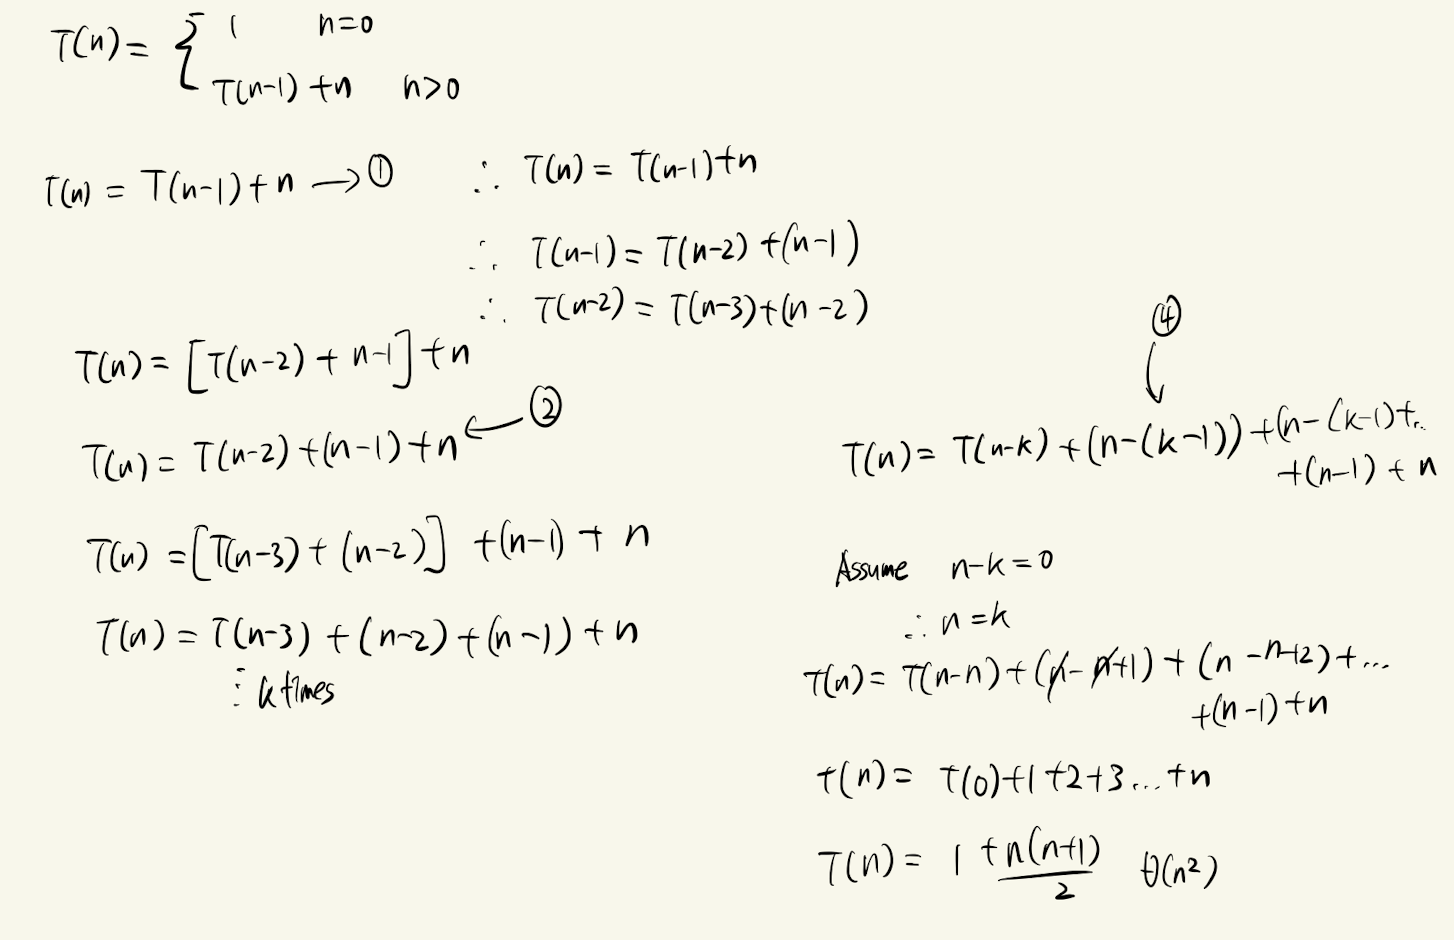 T(n) = { 1 n=0
T(n-1) + n n>0
T(n) = T(n-1) + n → ①
∴ T(n) = T(n-1) + n
∴ T(n-1) = T(n-2) + (n-1)
∴ T(n-2) = T(n-3) + (n-2)
T(n) = [T(n-2) + n-1] + n
T(n) = T(n-2) + (n-1) + n ← ②
T(n) = [T(n-3) + (n-2)] + (n-1) + n
T(n) = T(n-3) + (n-2) + (n-1) + n
⋮ k times
④
↓
T(n) = T(n-k) + (n-(k-1)) + (n-(k-1)+..
+(n-1) + n
Assume n-k = 0
∴ n = k
T(n) = T(n-n) + (n-n+1) + (n-n+2) + ...
+(n-1) + n
T(n) = T(0)+1+2+3...+n
T(n) = 1 + n(n+1)/2 θ(n²)